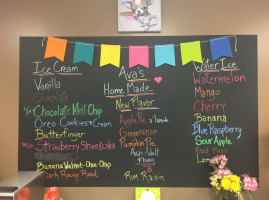 Ice Cream
Vanilla
Chocolate
Chocolate Mint Chip
Oreo Cookies & Cream
Butterfinger
Strawberry Shortcake
Banana Walnut Choc Chip
Dark Rocky Road
Ava's
Home Made
New Flavor
Apple Pie
Pumpkin Pie
Ava's Adult
Rum Raisin
Water Ice
Watermelon
Mango
Cherry
Banana
Blue Raspberry
Sour Apple
Root Beer